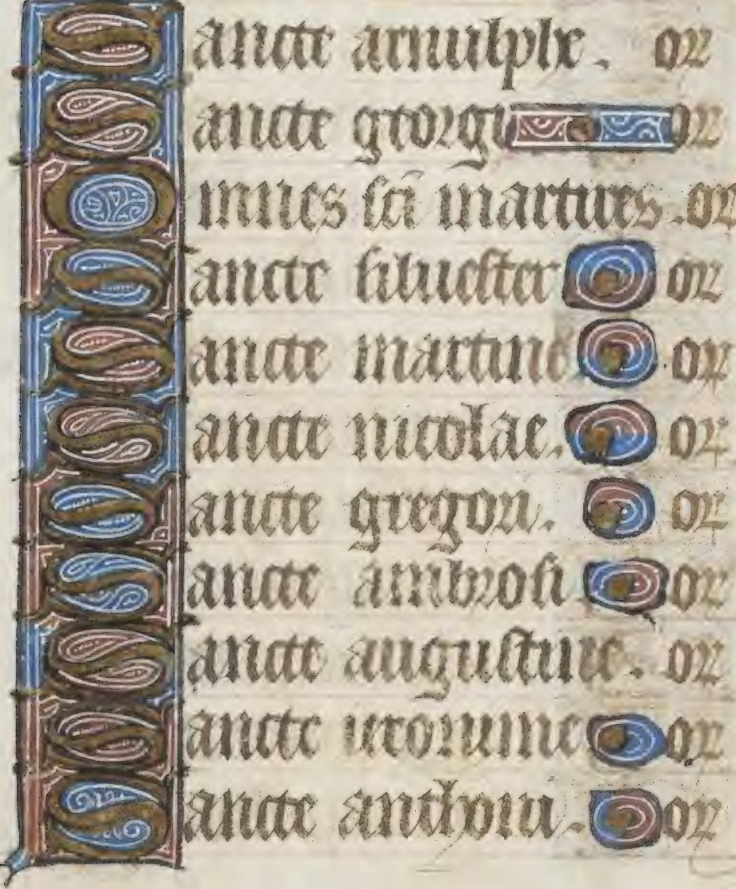 Sancte arnulphe. or
Sancte georgi or
Omnes sci martires. or
Sancte siluester or
Sancte martine or
Sancte nicolae. or
Sancte gregori. or
Sancte ambrosi or
Sancte augustine. or
Sancte ieronime or
Sancte anthoni. or